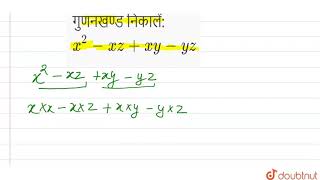 गुणनखण्ड निकालें:
x² − xz + xy − yz
x² − xz + xy − yz
x×x − x×z + x×y − y×z
doubtnut